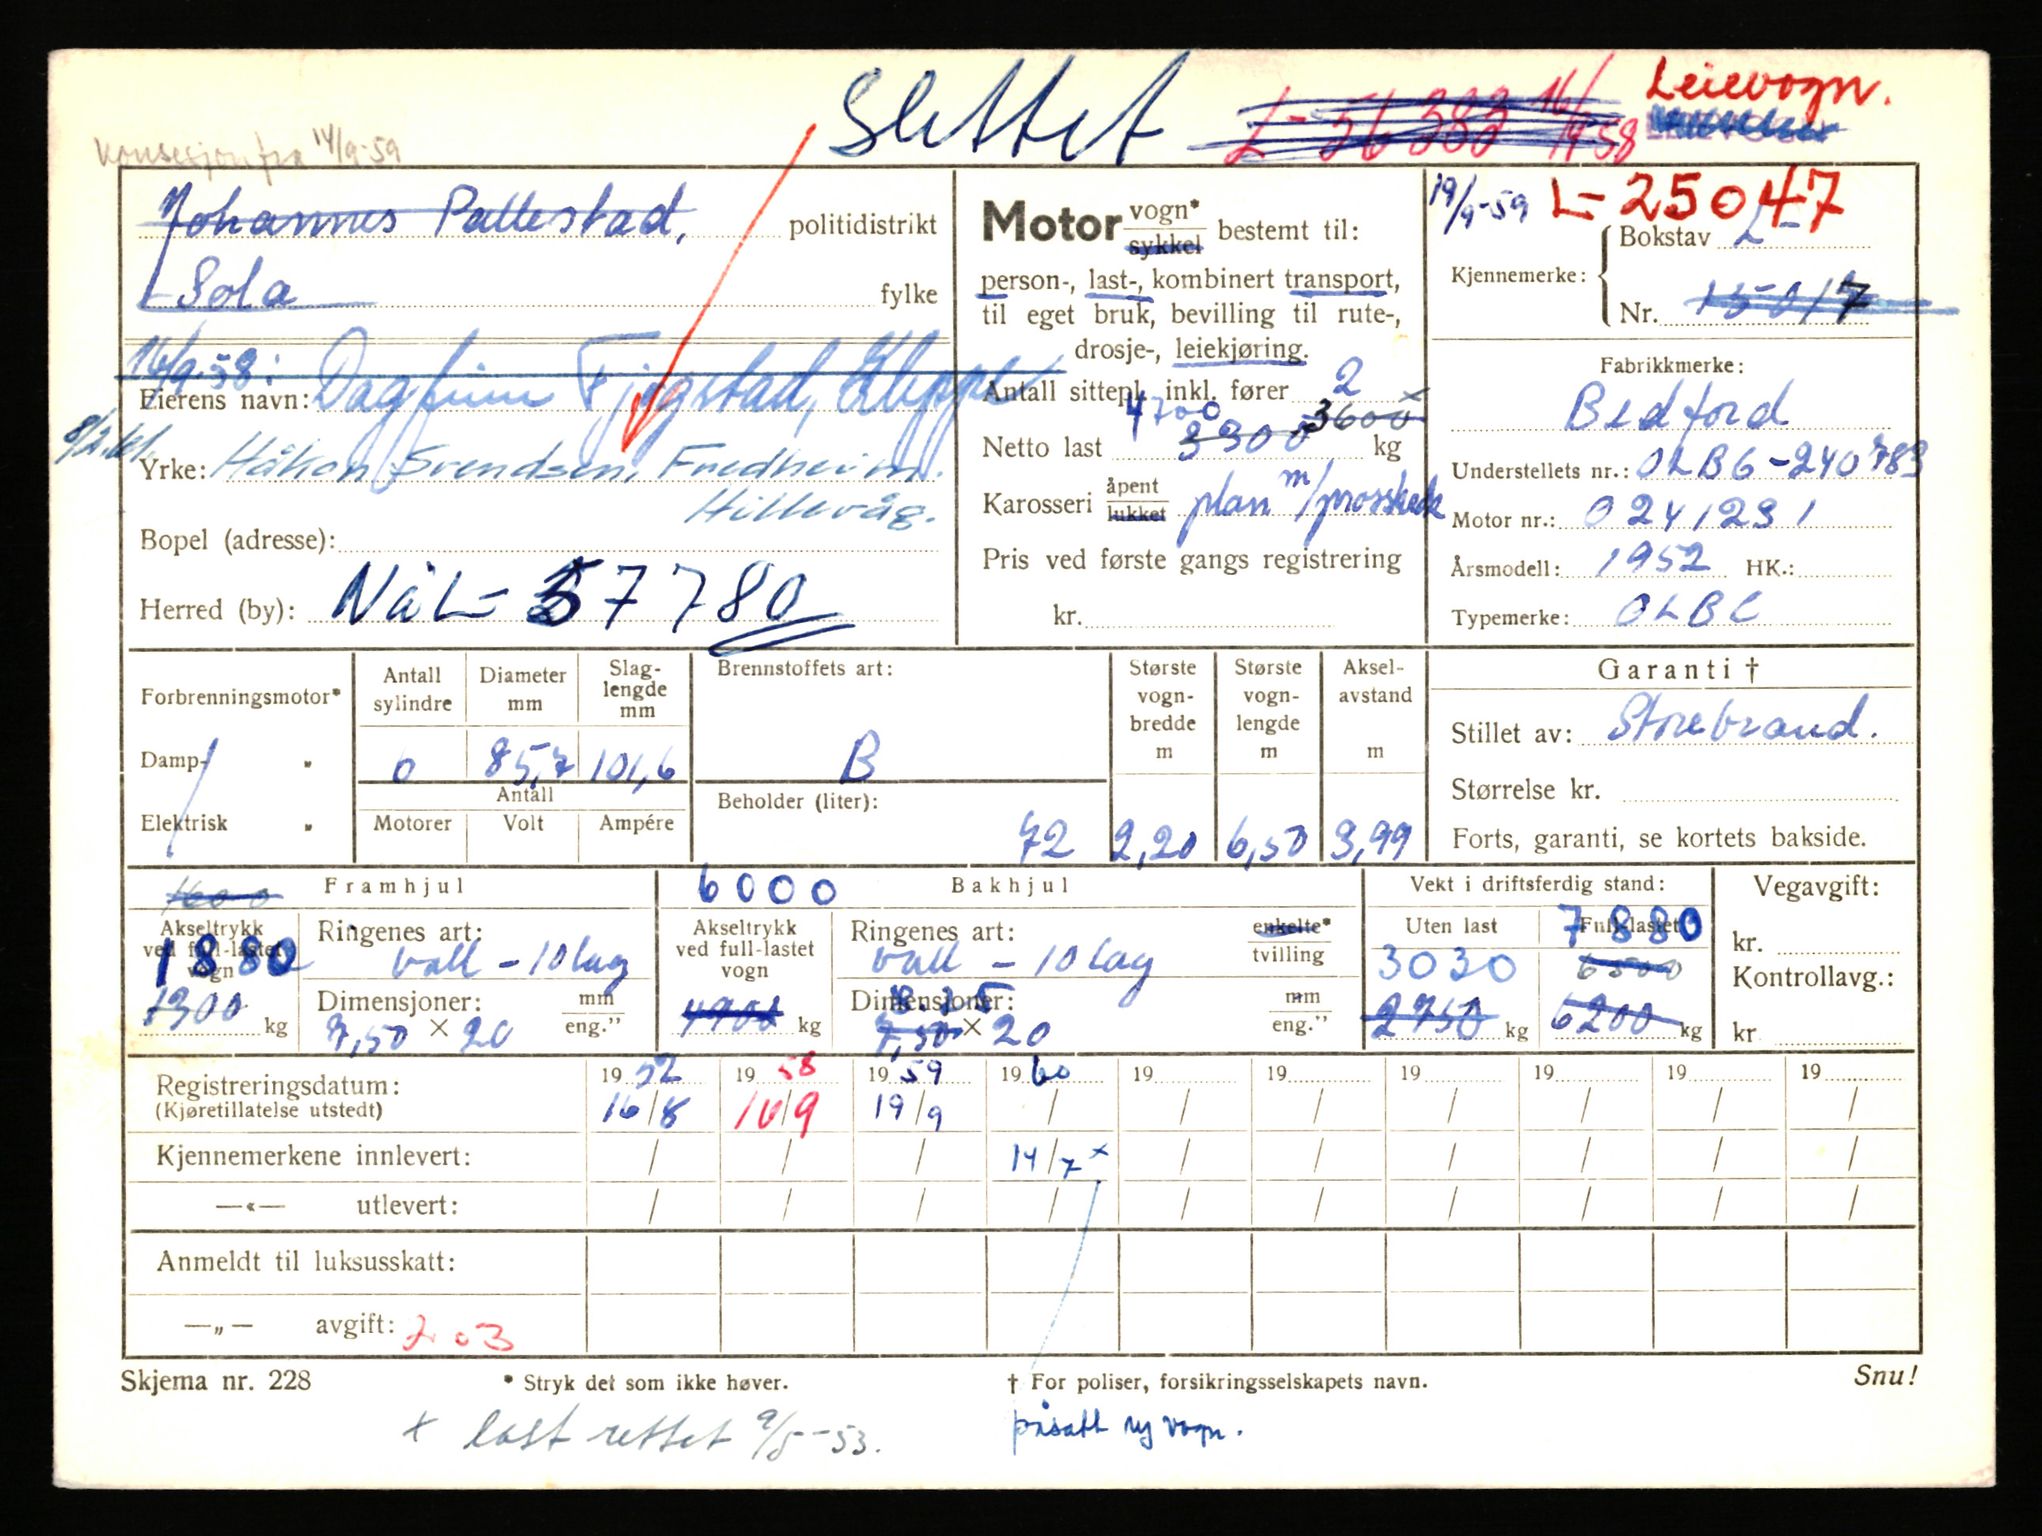 Slettet
L-56383 16/9 58
Leievogn.
Konsesjon fra 14/9-59
Johannes Pallestad, politidistrikt
Sola fylke
16/9-58: Dagfinn Fjogstad, Klepp
Eierens navn:
8/2.61. Yrke: Håkon Svendsen, Fredheim.
Hillevåg.
Bopel (adresse):
Herred (by): Nå L- 57780
Motor vogn* sykkel bestemt til:
person-, last-, kombinert transport,
til eget bruk, bevilling til rute-,
drosje-, leiekjøring.
Antall sittepl. inkl. fører 2
4700 3600 x
Netto last 3300 kg
Karosseri åpent lukket plan m/
Pris ved første gangs registrering
kr.
19/9-59 L-25047
Kjennemerke: Bokstav L-
Nr. 15017
Fabrikkmerke:
Bedford
Understellets nr.: OLB6-240783
Motor nr.: 0241231
Årsmodell: 1952 HK.:
Typemerke: OLBC
Forbrenningsmotor*
Damp- „
Elektrisk „
Antall sylindre 6
Diameter mm 85,7
Slaglengde mm 101,6
Antall
Motorer Volt Ampére
Brennstoffets art:
B
Beholder (liter):
72
Største vognbredde m 2,20
Største vognlengde m 6,50
Akselavstand m 3,99
Garanti †
Stillet av: Storebrand.
Størrelse kr.
Forts, garanti, se kortets bakside.
1600 Framhjul
Akseltrykk ved full-lastet vogn
1880
1300 kg
Ringenes art:
vall - 10 lag
Dimensjoner: mm eng.”
7,50 × 20
6000 Bakhjul
Akseltrykk ved full-lastet vogn
4900 kg
Ringenes art: enkelte* tvilling
vall - 10 lag
Dimensjoner: mm eng.”
8.25
7,50 × 20
Vekt i driftsferdig stand:
Uten last Full-lastet
7880
3030 6500
2750 kg 6200 kg
Vegavgift:
kr.
Kontrollavg.:
kr
Registreringsdatum: 1952 1958 1959 1960 19 19 19 19 19 19
(Kjøretillatelse utstedt) 16/8 16/9 19/9 / / / / / / /
Kjennemerkene innlevert: / / / 14/7 x / / / / / /
—«— utlevert: / / / / / / / / / /
Anmeldt til luksusskatt:
—„— avgift: 203
Skjema nr. 228 * Stryk det som ikke høver. † For poliser, forsikringsselskapets navn. Snu!
x last rettet 9/5-53. påsatt ny vogn.